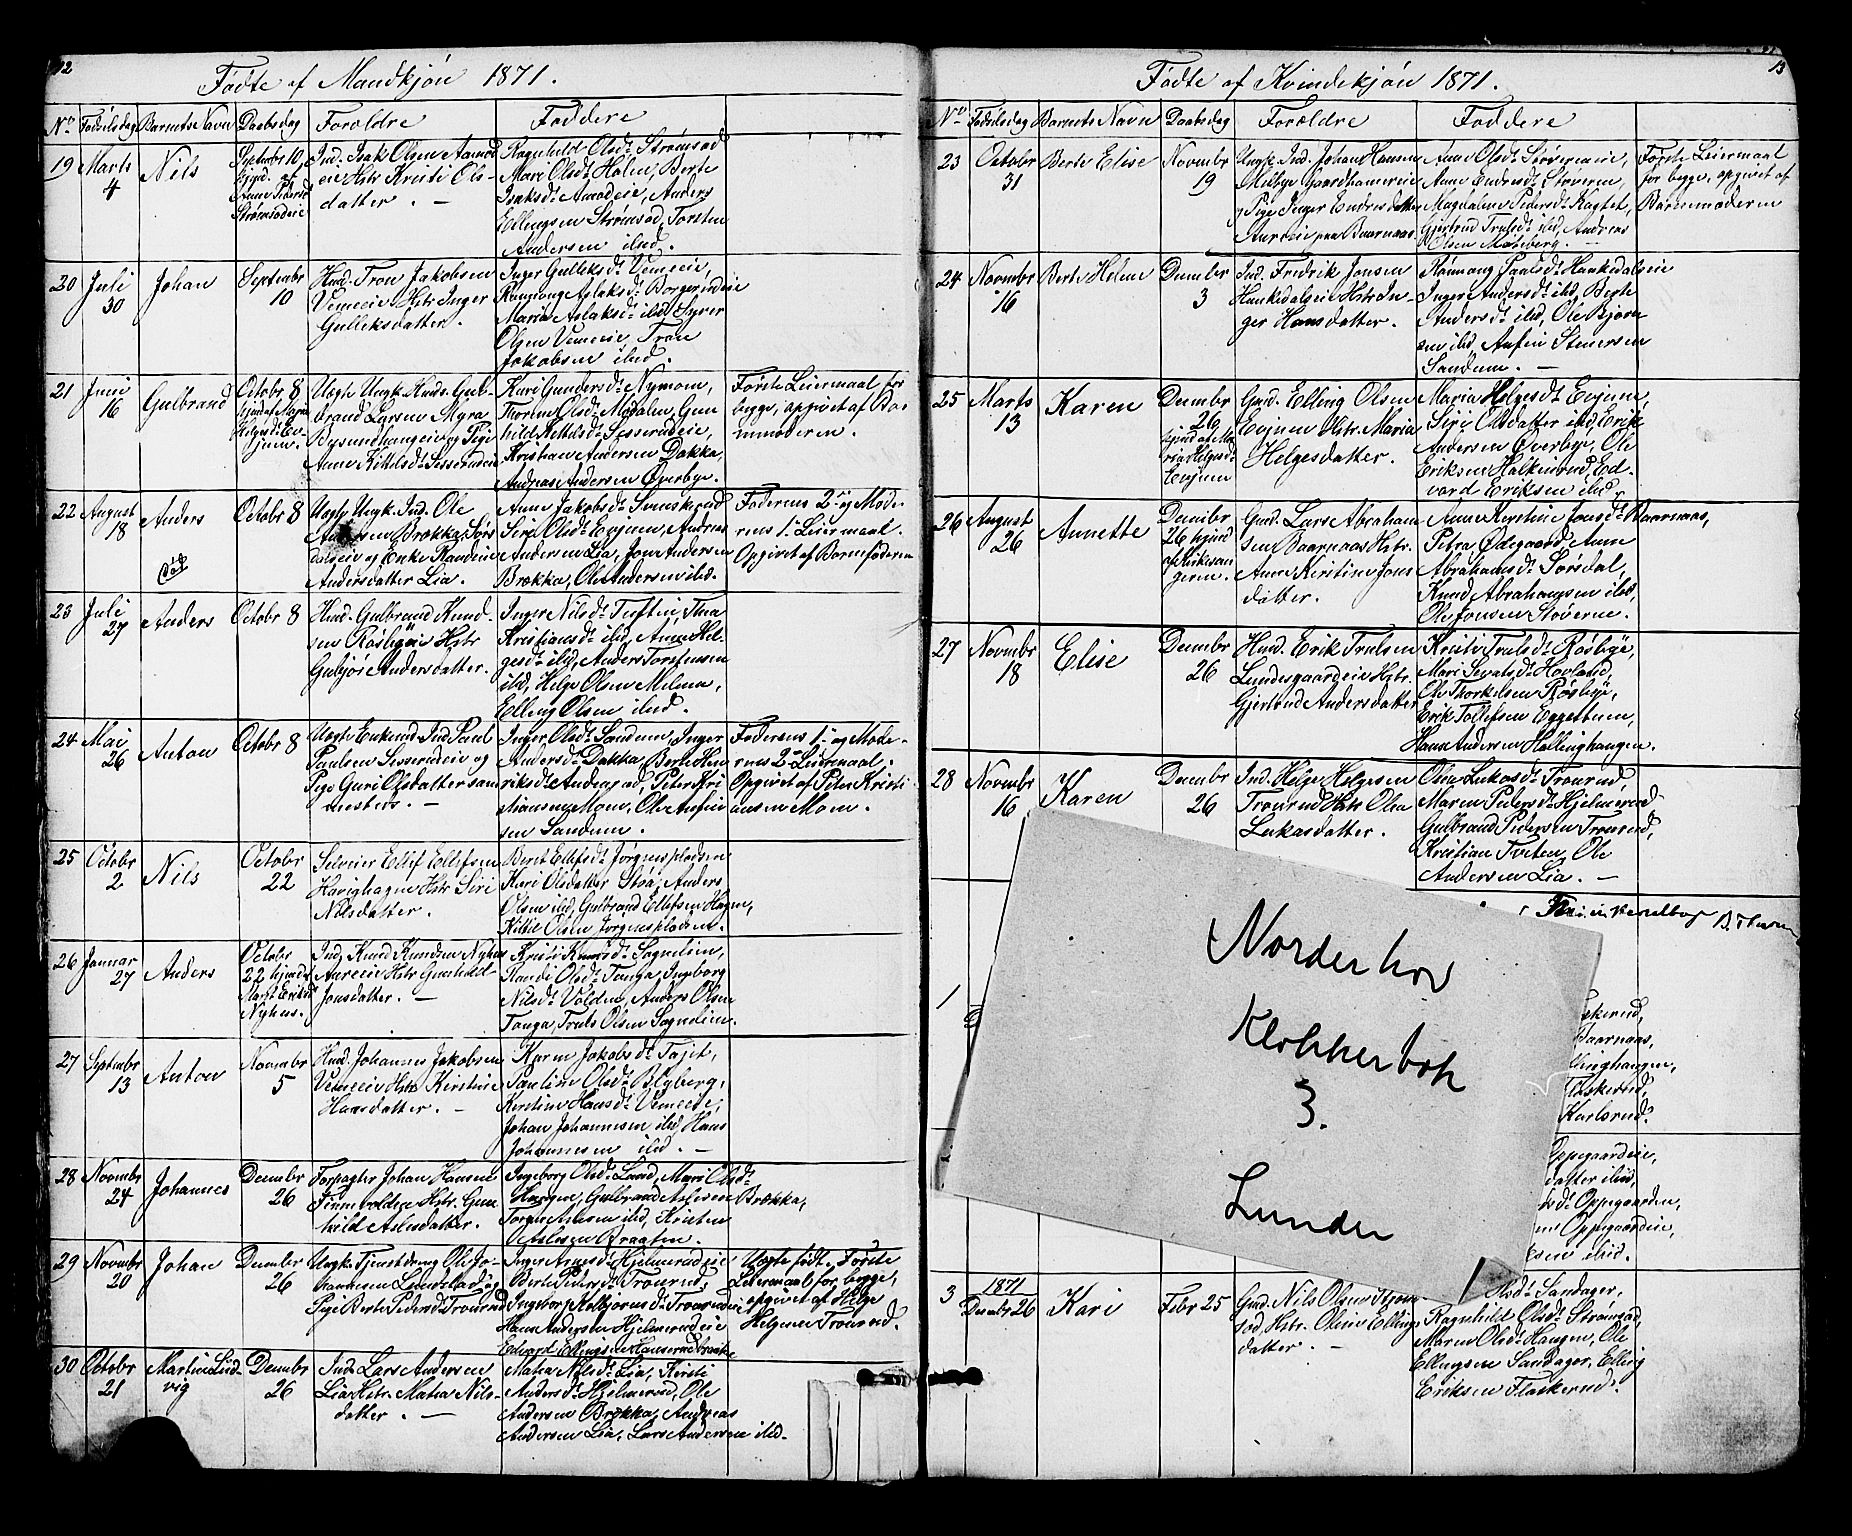 12
Fødte af Mandkjön 1871.
No Fødselsdag Barnets Navn Daabsdag Forældre Faddere
19 Marts 4 Nils
Septembr 10, hjmd. af Anne Pedersd. Strømsødeie
Ind. Isak Olsen Aamod
eie Hstr Kristi Ols-
datter. —
Ragnhild Olsd. Strømsød
Mari Olsd. Holen, Berte
Isaksd. Amodeie, Anders
Ellingsen Strømsød, Torsten
Andersen ibid.
20 Juli 30 Johan Septembr 10
Husd. Tron Jakobsen
Vemeeie Hstr Inger
Gulleksdatter.
Inger Gulleksd. Vemeeie,
Rannong Aslaksd. Borgerudeie
Maria Aslaksd. ibid, Syver
Olsen Vemeeie, Tron
Jakobsen ibid.
21 Juni 16 Gulbrand
Octobr 8 hjmd af Maria Helgesd. Evjuen.
Uægte Ungk. Husd. Gul-
brand Larsen Myra
Bysundhangeie og Pige
Anne Kittelsd. Sesserudeie
Kari Gundersd. Nymoen,
Thorine Olsd. Modalen, Gun
hild Kettilsd. Sesserudeie,
Kristian Andersen Dakka,
Andreas Andersen Øverbye.
Første Leiermaal for
begge, opgivet af Bar
nmoderen.
22 August 18 Anders Octobr 8
død
Uægte Ungk. Ind. Ole
Andersen Brækka, Sørs
dalseie og Enke Randine
Andersdatter Lia.
Anne Jakobsd. Simskerud
Siri Olsd. Evjuen, Andreas
Andersen Lia, Jon Andersen
Brækka, Ole Andersen ibid.
Faderens 2det og Mode-
rens 1ste Leiermaal.
Opgivet af Barnefaderen
23 Juli 27 Anders Octobr 8
Husd. Gulbrand Knud-
sen Røsbyeie Hstr
Gubjør Andersdatter.
Inger Nilsd. Tuftin, Thea
Kristiansd. ibid, Anne Hel-
gesd. ibid, Anders Torstensen
ibid, Helge Olsen Melum,
Elling Olsen ibid.
24 Mai 26 Anton Octobr 8
Uægte Enkemd. Ind Paul
Paulsen Sesserudeie og
Pige Guri Olsdatter sam
mesteds. —
Inger Olsd. Sandum, Inger
Andersd. Dakka, Berte Hen
riksd. Andersrud, Peter Kri
stiansen Moen, Ole Anfin
sen Sandum.
Faderens 1ste og Mode-
rens 2det Leiermaal.
Opgivet af Peter Kristi
ansen Moen.
25 Octobr 2 Nils Octobr 22
Selveier Ellif Ellifsen
Høvighagen Hstr Siri
Nilsdatter.
Berit Ellifsd. Jørgensplads
Kari Olsdatter Støa, Anders
Olsen ibid, Gulbrand Ellifsen Hagen,
Kittil Olsen Jørgensplads.
26 Januar 27 Anders
Octobr 22 hjmds Marit Eriksd Nyhus.
Ind. Knud Knudsen Nyhus
Aureeie Hstr Gunhild
Jonsdatter. —
Kristi Knudsd. Sognelien,
Randi Olsd. Tanga, Ingeborg
Nilsd. Volden, Anders Olsen
Tanga, Truls Olsen Sognelien.
27 Septembr 13 Anton Novembr 5
Husd. Johannes Jakobsen
Vemeeie Hstr Kirstine
Hansdatter. —
Karen Jakobsd. Tajet,
Pauline Olsd. Blyberg,
Kirstine Hansd. Vemeeie,
Johan Johannesen ibid, Hans
Johannesen ibid. —
28 Novembr 24 Johannes Decembr 26
Forpagter Johan Hansen
Finnevolden Hstr. Gun
hild Aslesdatter.
Ingeborg Olsd. Lund, Mari Olsd. Brækka,
Haugen, Gulbrand Aslesen
Torgrim Aslesen ibid, Kristen
Aslesen Braaten.
29 Novembr 20 Johan Decembr 26
Ungk. Tjenstdreng Ole Jo-
hannesen Lundstad og
Pige Berte Pedersd. Tronrud
Inger Arnesd. Hjelmerudeie
Berte Pedersd. Tronrud,
Ingeborg Kolbjørnsd. Tronrudeie
Hans Andersen Hjelmerudeie
Edvard Ellingsen Hanserudbraaten
Uægte født, Første
Leiermaal for begge,
opgivet af Helge
Helgesen Tronrud.
30 Octobr 21 Martin Lud-
vig Decembr 26
Ind Lars Andersen
Lia Hstr. Matea Nils-
datter. —
Matea Nilsd. Lia, Kirsti
Andersd. Hjelmerud, Ole
Andersen Brækka, Andreas
Andersen Lia, Lars Andersen ibid.
13
Fødte af Kvindekjön 1871.
No Fødselsdag Barnets Navn Daabsdag Forældre Faddere
23 Octobr 31 Berte Elise Novembr 19
Ungk. Ind. Johan Hansen
Milbye Gaardhammereie
og Pige Inger Endresdatter
Aureeie paa Baarnaas
Anne Olsd. Støverneie,
Anne Endresd. Støvern,
Magdalene Pedersd. Ragtet,
Gjertrud Trulsd. ibid, Andreas
Olsen Moesberg. —
Første Leiermaal
for begge, opgivet af
Barnemoderen
24 Novembr 16 Berte Helene Decembr 3
Ind. Fredrik Jonsen
Hankedalseie Hstr In-
ger Hansdatter.
Rønnong Paulsd. Hankedalseie
Inger Andersd. ibid, Berte
Andersd. ibid, Ole Bjørn
sen ibid, Anfin Stenersen
Sandum. —
25 Marts 13 Karen
Decembr 26 hjmd af Maria Helgesd. Evjuen
Gmd. Elling Olsen
Evjuen Hstr. Maria
Helgesdatter.
Maria Helgesd. Evjuen,
Siri Olsdatter ibid, Erik
Andersen Øverbye, Ole
Eriksen Halkinrud, Ed-
vard Eriksen ibid.
26 August 26 Annette
Decembr 26 hjmd af Kirkesangeren.
Gmd. Lars Abraham
sen Baarnaas Hstr.
Anne Kirstine Jons
datter.
Anne Kirstine Jonsd. Baarnaas,
Petra Ødegaard, Anne
Abrahamsd. Sørsdal,
Knud Abrahamsen ibid,
Ole Jonsen Støverne.
27 Novembr 18 Elise Decembr 26
Husd. Erik Trulsen
Lundesgaardeie Hstr.
Gjertrud Andersdatter
Kristi Trulsd. Røsbye,
Mari Sevatsd. Hovland,
Ole Thorkelsen Røsbye,
Erik Tollefsen Eggettuen,
Hans Andersen Hellinghaugen.
28 Novembr 16 Karen Decembr 26
Ind. Helge Helgesen
Tronrud Hstr Olea
Lukasdatter.
Olea Lukasd. Tronrud,
Maren Pedersd. Hjelmerud
Gulbrand Pedersen Tronrud,
Kristian Tveten, Ole
Andersen Lia. —
1
skerud,
Baarnaas,
llinghaugen,
Flaskerud,
Karlsrud.
Oppegaardeie,
datter ibid,
sd. Oppegaarden,
Oppegaardeie,
sen ibid.
3 1871 Decembr 26 Kari Febr 25
Gmd. Nils Olsen Strøm
sød Hstr. Oline Ellings
datter. —
Olsd. Sandager,
Ragnhild Olsd. Strømsød,
Maren Olsd. Haugen, Ole
Ellingsen Sandager, Elling
Eriksen Flaskerud.
Norderhov
Klokkerbok
3.
Lunder